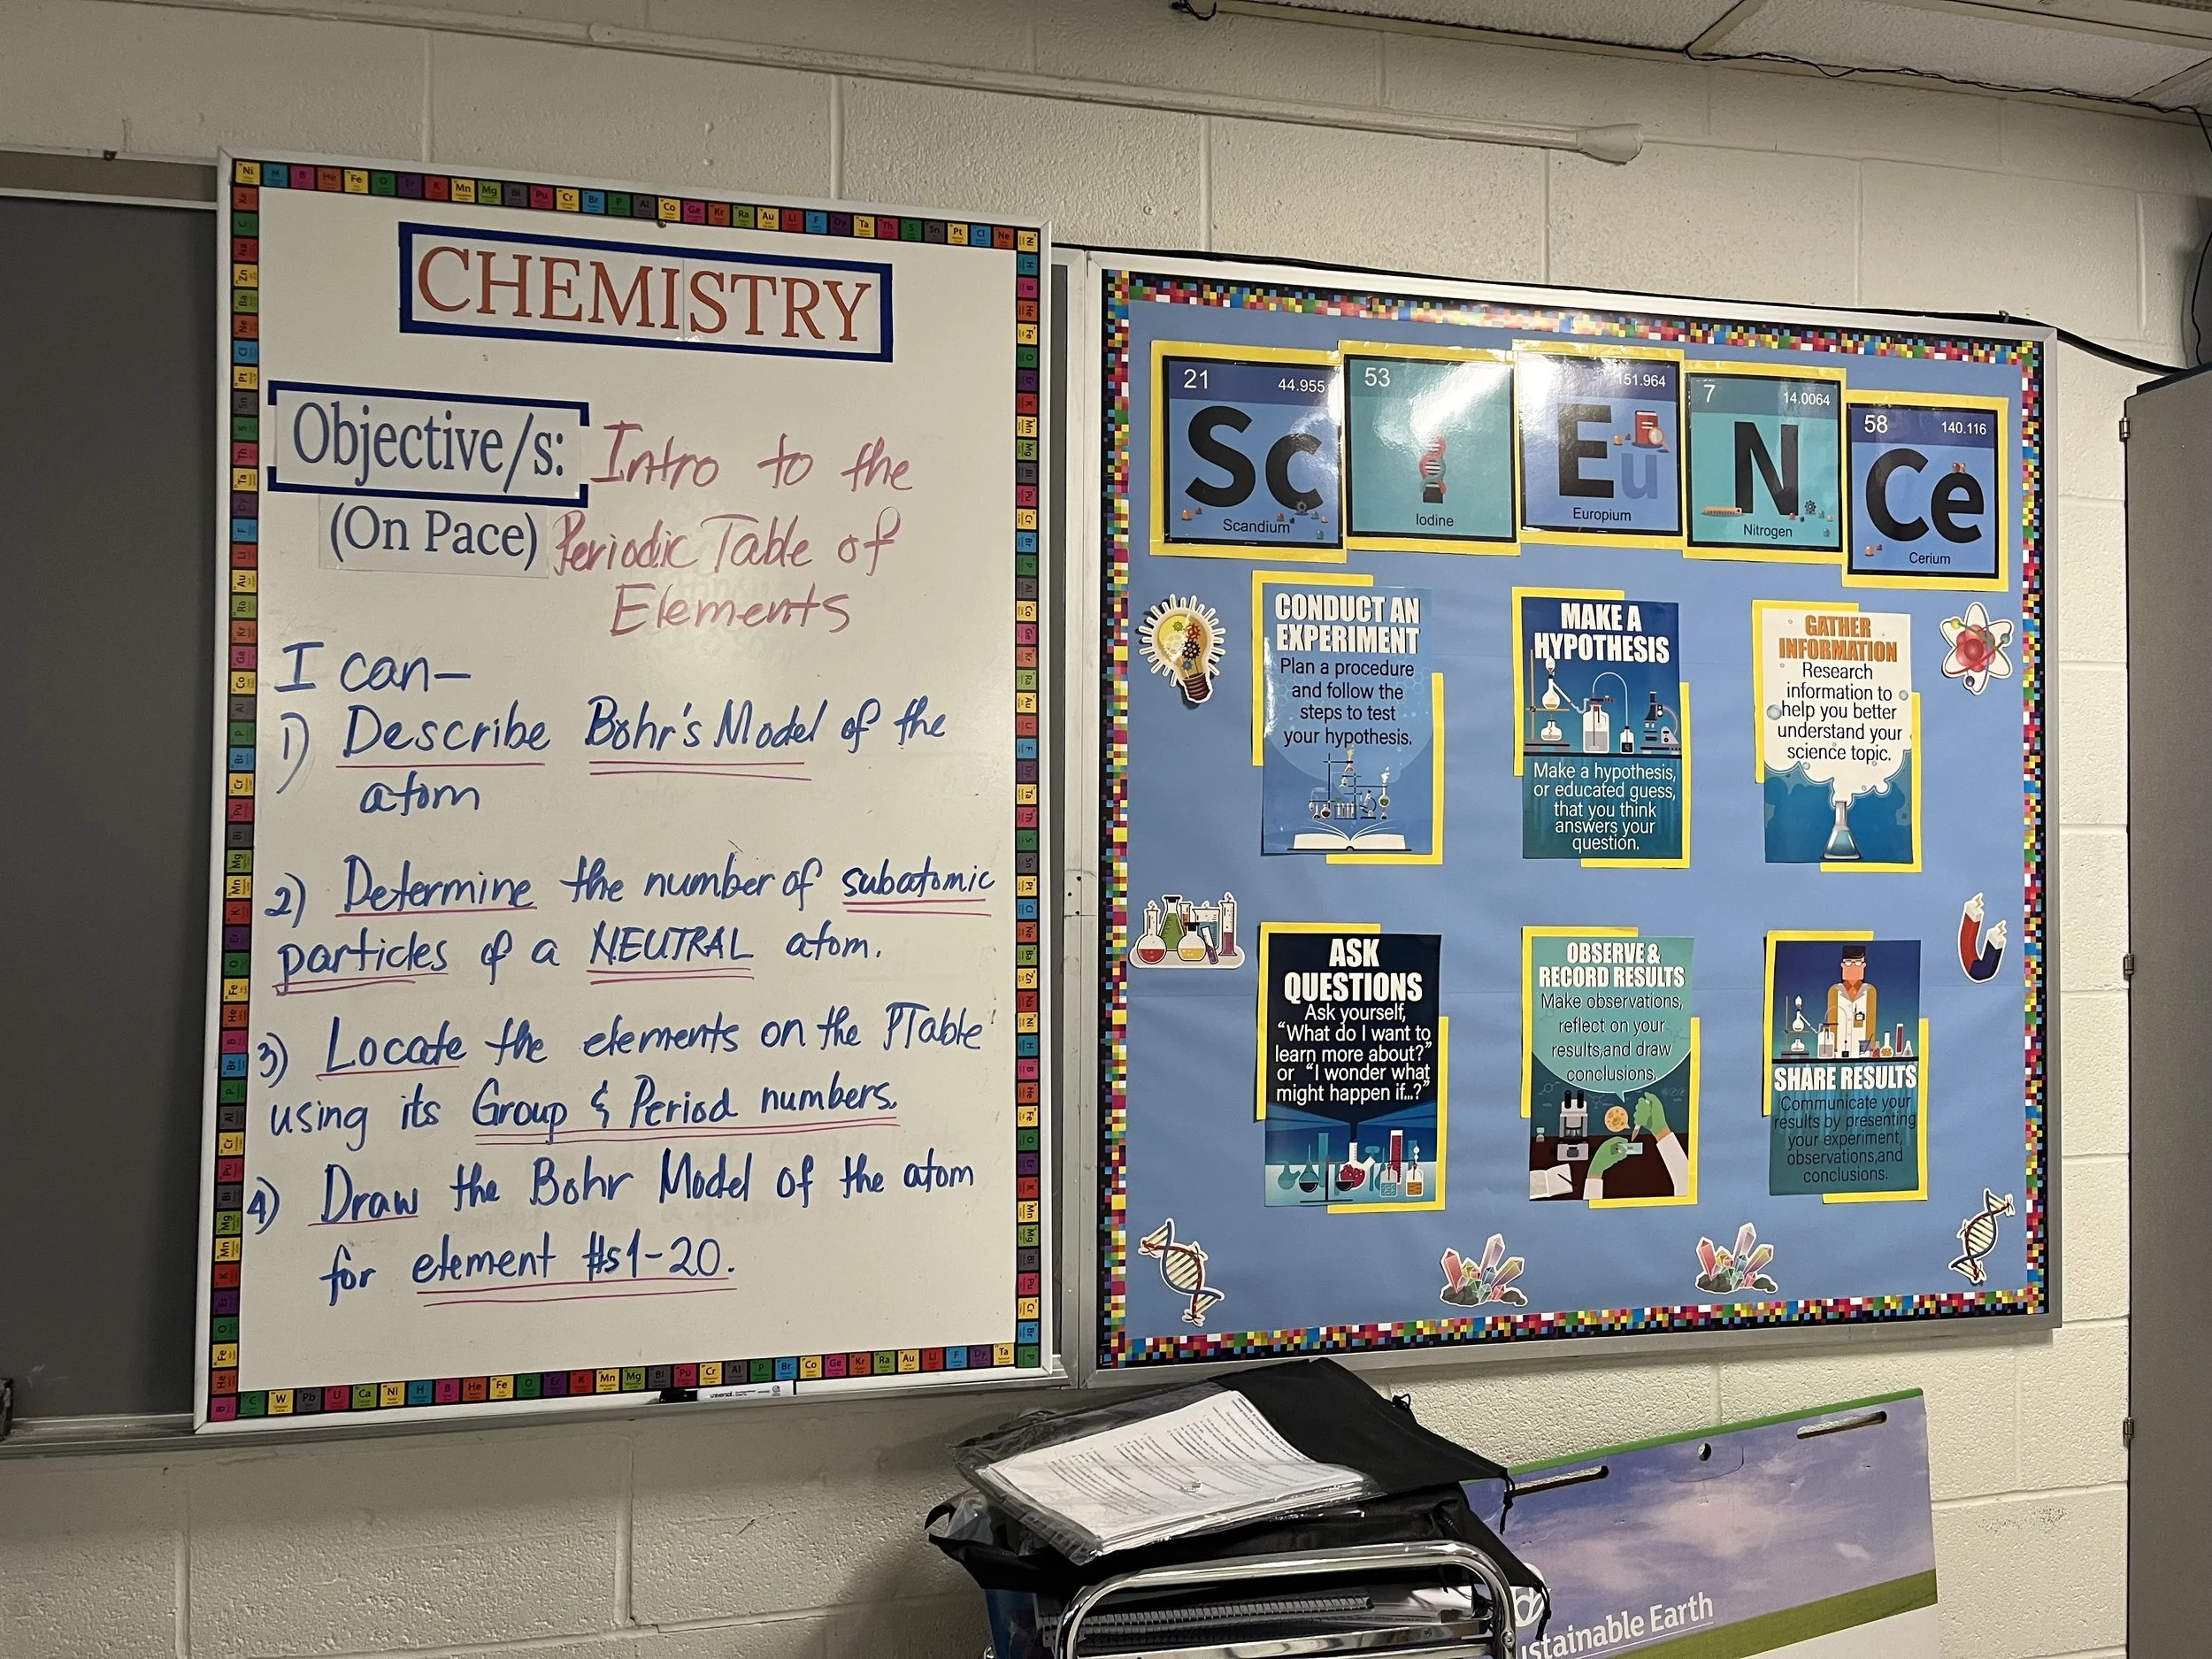 CHEMISTRY
Objective/s: Intro to the
(On Pace) Periodic Table of
Elements
I can—
1) Describe Bohr's Model of the
atom
2) Determine the number of subatomic
particles of a NEUTRAL atom.
3) Locate the elements on the PTable
using its Group & Period numbers.
4) Draw the Bohr Model of the atom
for element #s 1-20.
21 44.955
Sc
Scandium
53
I
Iodine
151.964
Eu
Europium
7 14.0064
N
Nitrogen
58 140.116
Ce
Cerium
CONDUCT AN
EXPERIMENT
Plan a procedure
and follow the
steps to test
your hypothesis.
MAKE A
HYPOTHESIS
Make a hypothesis,
or educated guess,
that you think
answers your
question.
GATHER
INFORMATION
Research
information to
help you better
understand your
science topic.
ASK
QUESTIONS
Ask yourself,
“What do I want to
learn more about?”
or “I wonder what
might happen if...?”
OBSERVE &
RECORD RESULTS
Make observations,
reflect on your
results,and draw
conclusions.
SHARE RESULTS
Communicate your
results by presenting
your experiment,
observations,and
conclusions.
ustainable Earth